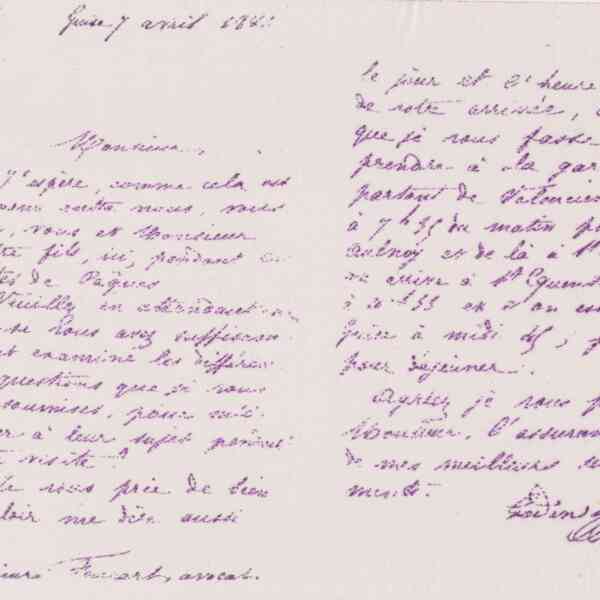 Guise 7 avril 188
Monsieur,
J'espère, comme cela est
entre nous, vous
, vous et Monsieur
fils, ici, pendant
de Pâques
Veuillez en attendant
si vous avez suffisam
examiné les différen
questions que je vous
soumises, pour
er à leur sujet pendant
visite ?
Je vous prie de bien
loir me dire aussi
Foucart, avocat.
le jour et l'heure
de votre arrivée,
que je vous fasse
prendre à la gar
partant de Valencien
à 7h 35 du matin
Aulnoy et de là à St
on arrive à St Quent
à h 55 et l'on est
Guise à midi 45,
pour déjeuner.
Agréez je vous
Monsieur, l'assuran
de mes meilleurs
ments.
Godin